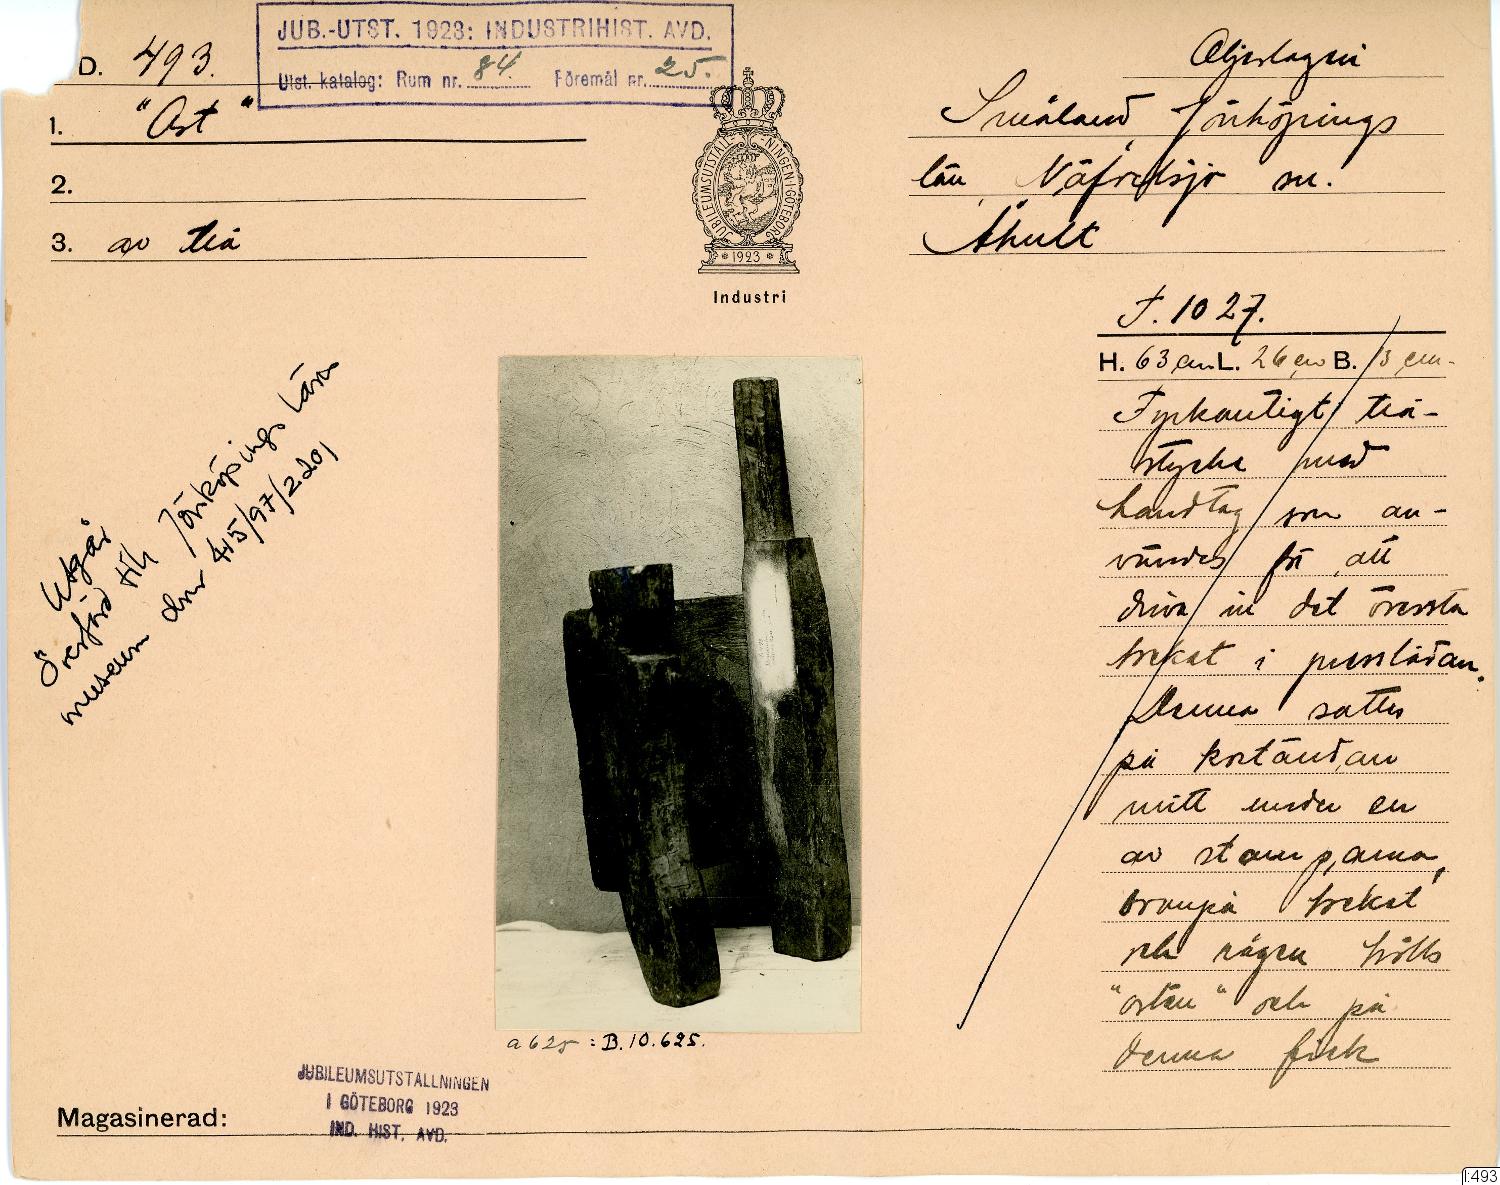 JUB.-UTST. 1923: INDUSTRIHIST. AVD.
Utst. katalog: Rum nr. 84. Föremål nr. 25.
D. 493.
1. "Ost"
2.
3. av trä
JUBILEUMSUTSTÄLLNINGEN I GÖTEBORG
1923
Industri
Oljeslageri
Småland, Jönköpings
län, Näfvelsjö sn.
Åhult
F. 1027.
H. 63 cm L. 26 cm B. 13 cm.
Fyrkantigt trä-
stycke med
handtag som an-
vändes för att
driva in det översta
locket i presslådan.
Denna sattes
på kortändan
mitt under en
av stamparna,
ovanpå locket
och några hölls
"osten" och på
denna fick
Utgår
Överförd till Jönköpings läns
museum dnr 415/97/2201
a 625 : B.10.625.
JUBILEUMSUTSTÄLLNINGEN
I GÖTEBORG 1923
IND. HIST. AVD.
Magasinerad:
I:493